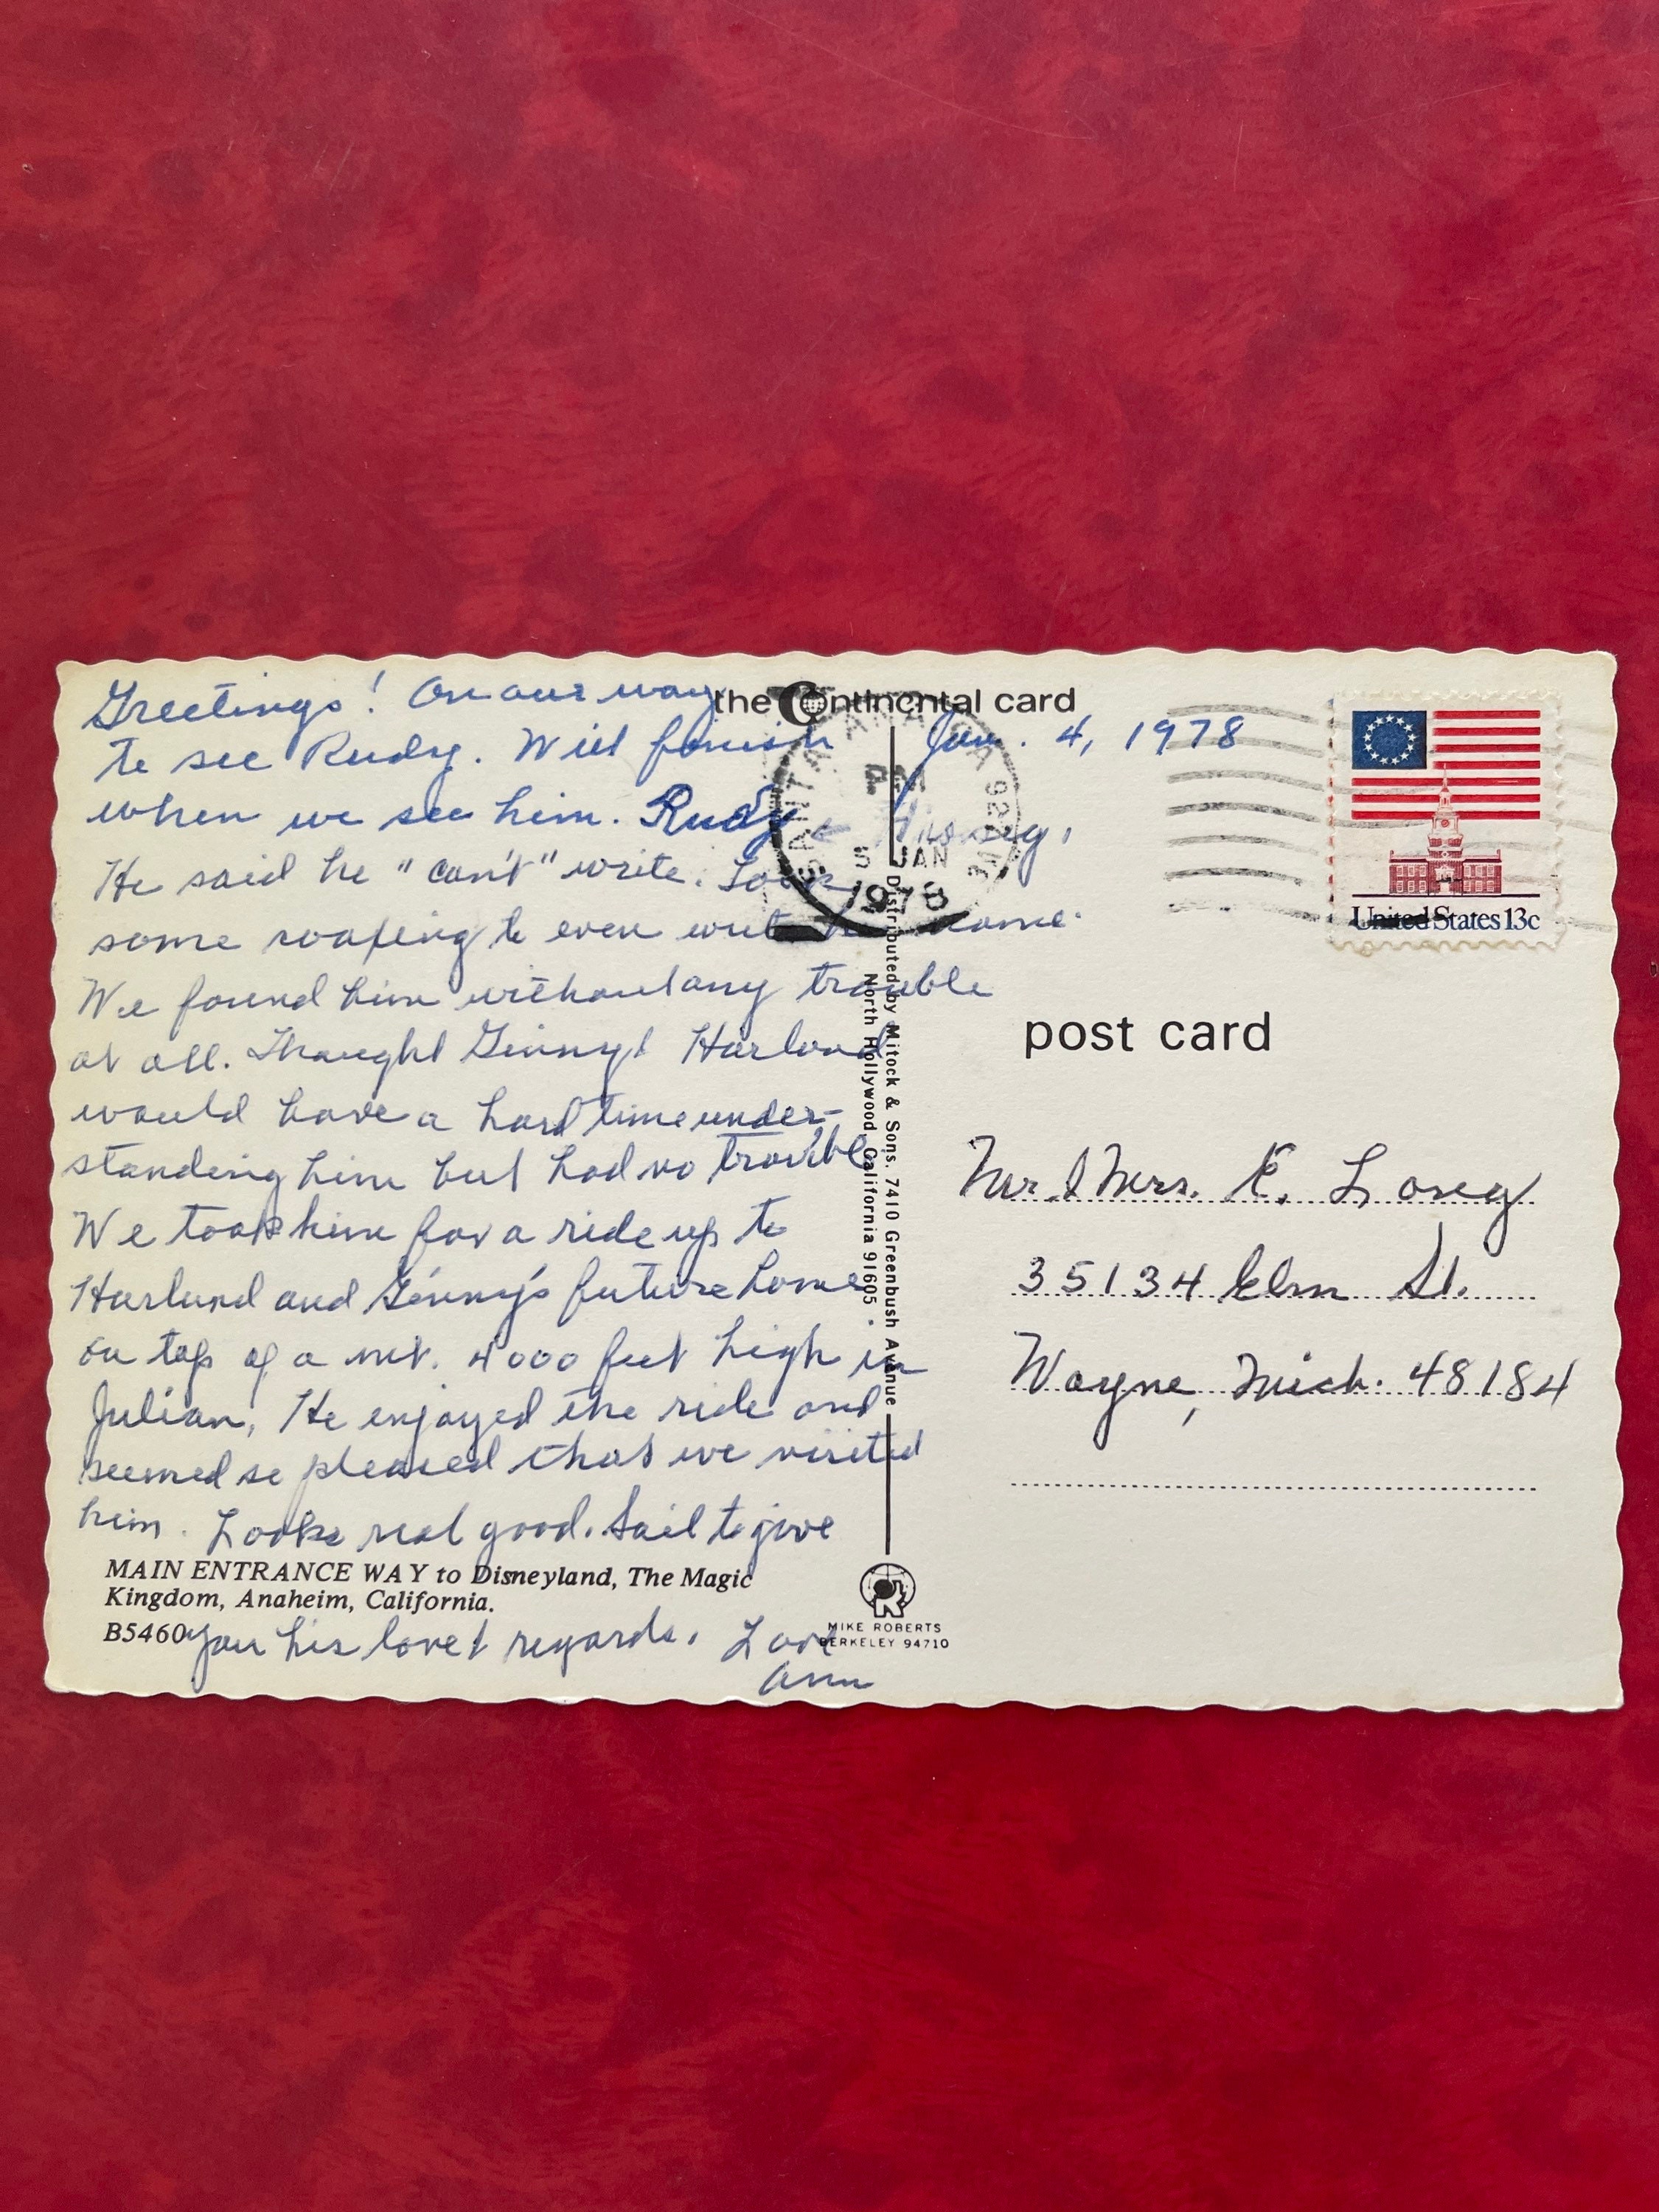 the Continental card
Jan. 4, 1978
Greetings! On our way
to see Rudy. Will finish
when we see him. Rudy
He said he "can't" write. Took
some coaxing to even write his name.
We found him without any trouble
at all. Thought Ginny & Harland
would have a hard time under-
standing him but had no trouble
We took him for a ride up to
Harlund and Ginny's future home
on top of a mt. 4000 feet high in
Julian, He enjoyed the ride and
seemed so pleased that we visited
him. Looks real good. Said to give
you his love & regards. Love
Ann
MAIN ENTRANCE WAY to Disneyland, The Magic
Kingdom, Anaheim, California.
B5460
SANTA ANA
PM
5 JAN
1978
Distributed by Mitock & Sons. 7410 Greenbush Avenue
North Hollywood, California 91605 .
MIKE ROBERTS
BERKELEY 94710
United States 13c
post card
Mr. & Mrs. E. Long
35134 Elm St.
Wayne, Mich. 48184